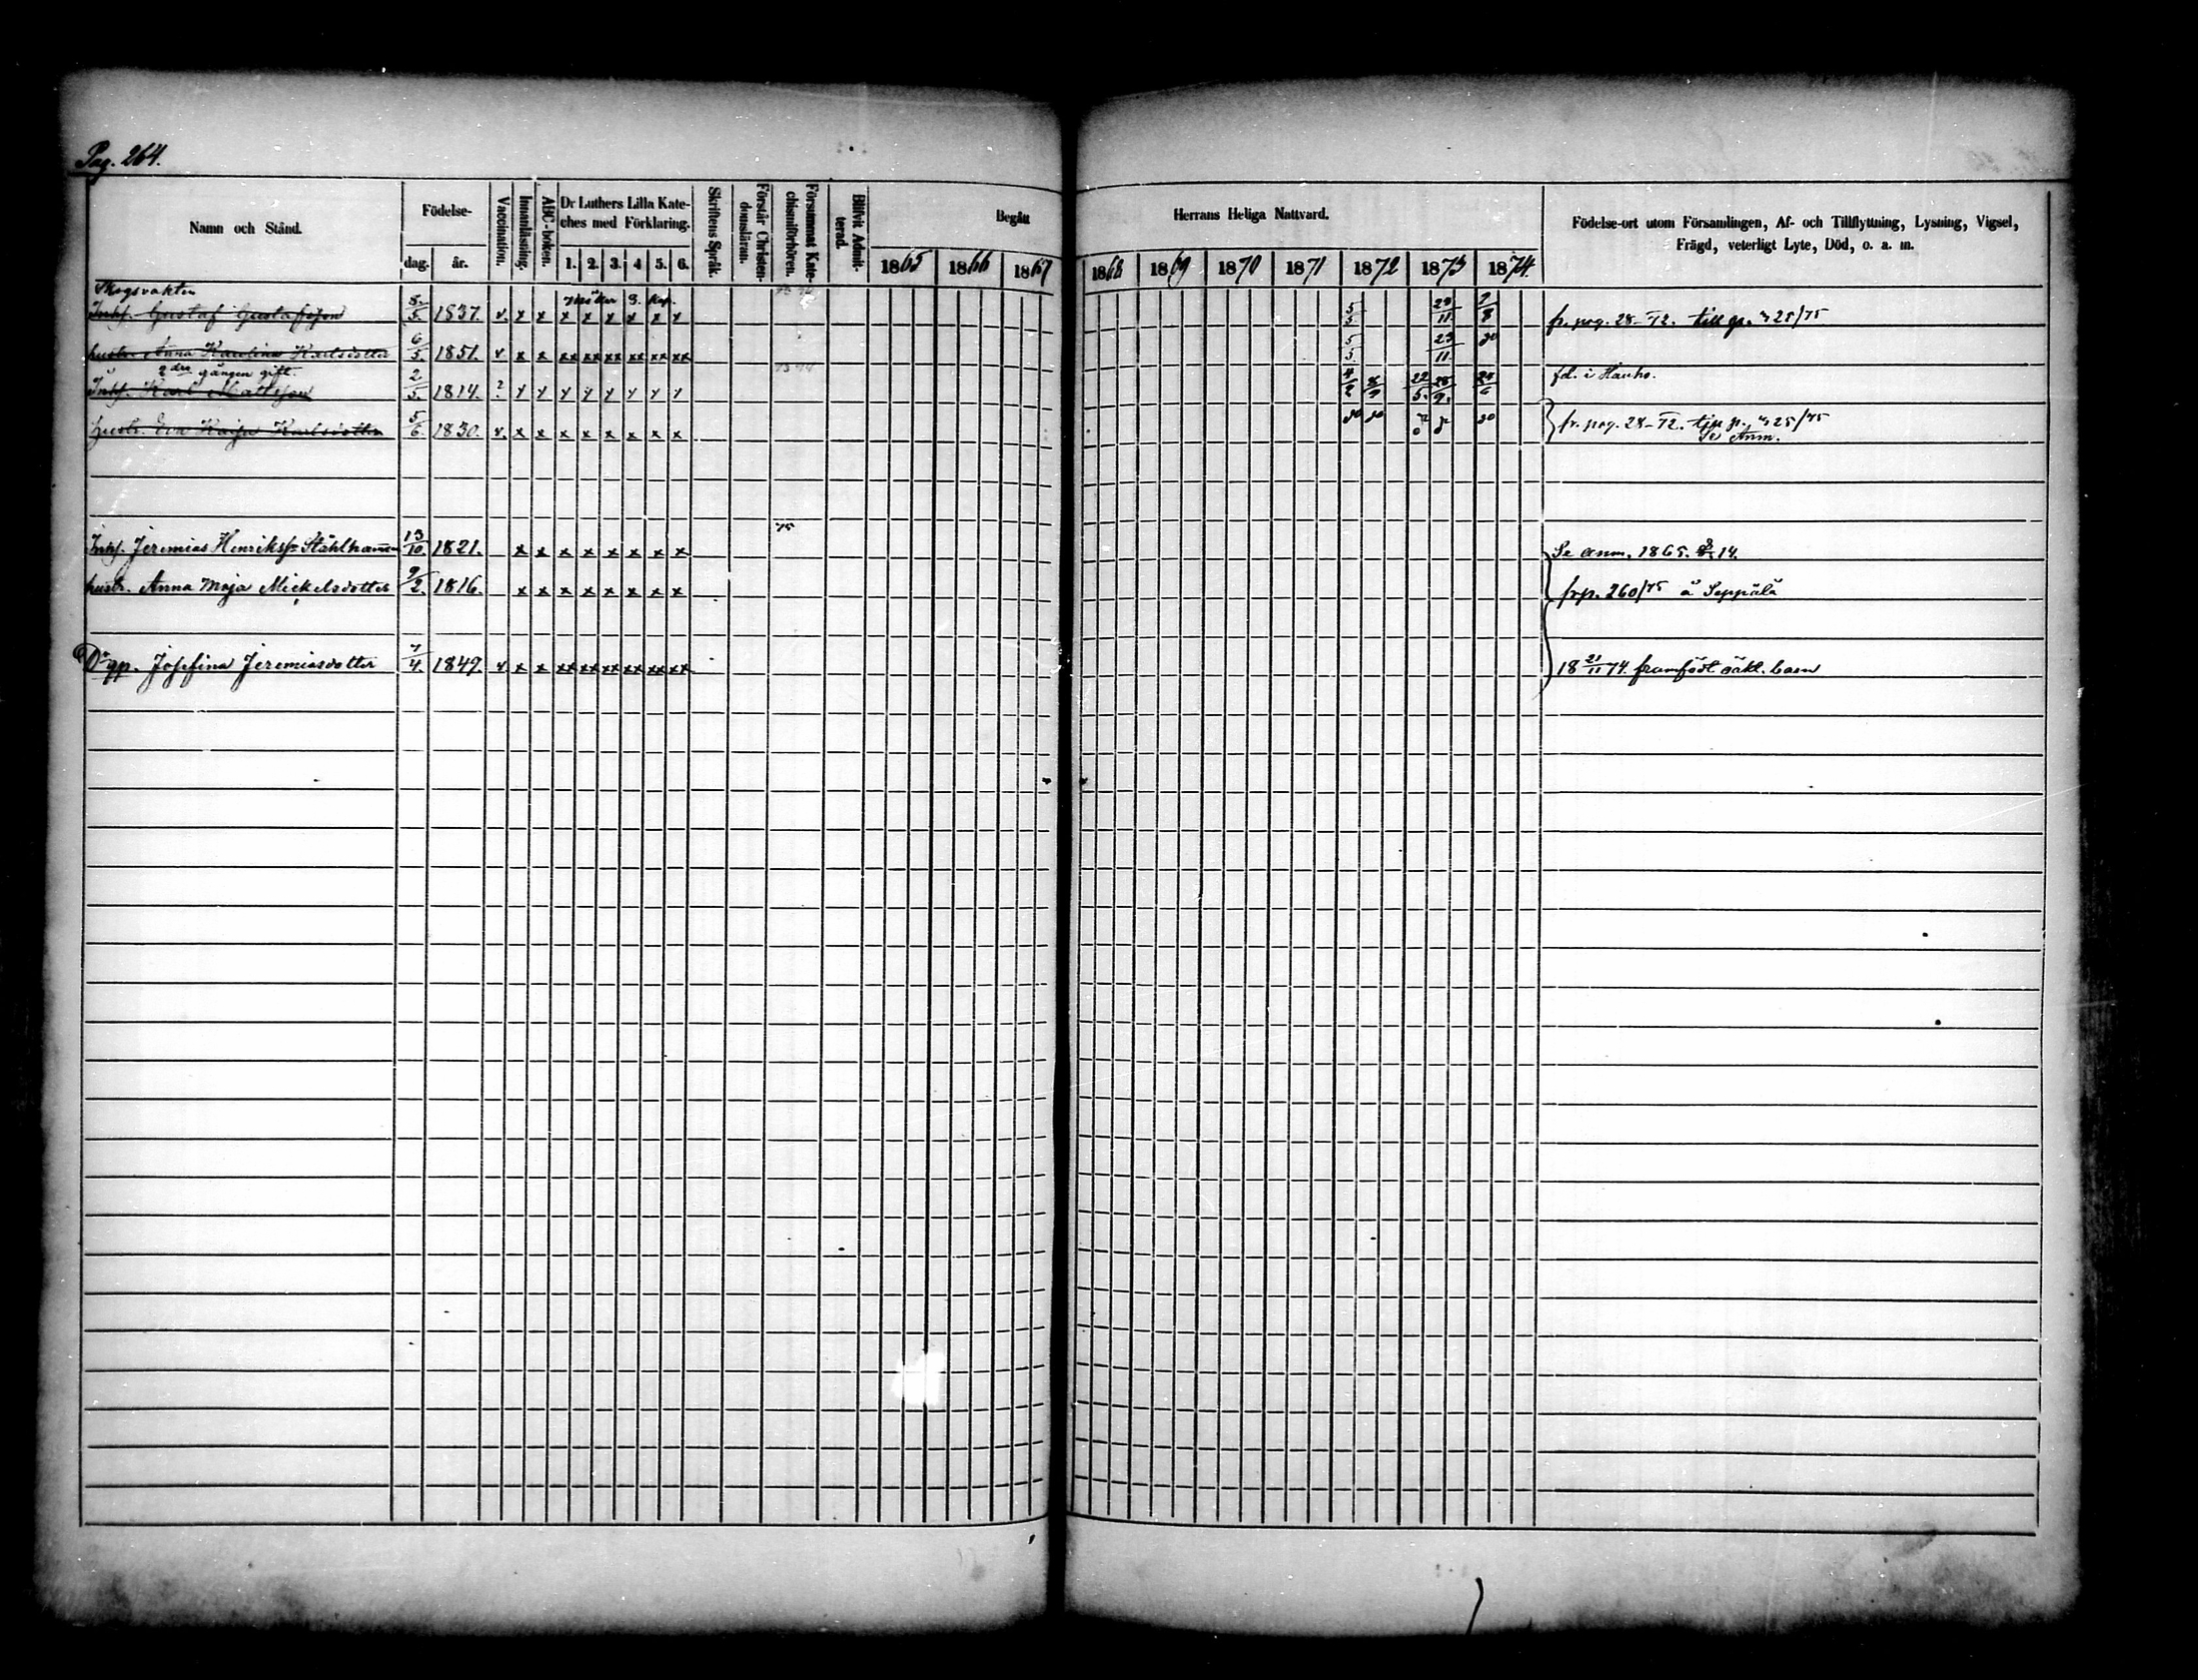 Pag. 264.
Namn och Stånd.
Födelse-
dag. år.
Vaccination.
Innanläsning.
ABC-boken.
Dr Luthers Lilla Kate-
ches med Förklaring.
1. 2. 3. 4 5. 6.
Skriftens Språk.
Förstår Christen-
domsläran.
Försummat Kate-
chismiförhören.
Blifvit Admit-
terad.
Begått Herrans Heliga Nattvard.
1865 1866 1867 1868 1869 1870 1871 1872 1873 1874.
Födelse-ort utom Församlingen, Af- och Tillflyttning, Lysning, Vigsel,
Frägd, veterligt Lyte, Död, o. a. m.
Skogsvakten
Inhs. Gustaf Gustafsson 8/5 1837. v. x x x x x x x x 5/5 23/11 fr. pag. 28-72. till p. 25/75
hustr. Anna Karolina Karlsdotter 6/5. 1851. v x x xx xx xx xx xx xx 5/5. 23/11
2dra gången gift.
Inhs. Karl Mattsson 2/5. 1814. ? y y y y y y y y fd. i Hauho.
Hustr. Eva Kajsa Karlsdotter 5/6. 1830. v. x x x x x x x x fr. pag. 28-72. p. 25/75
Se Anm.
75
Inhs. Jeremias Henrikss Ståhlhamm 13/10. 1821. x x x x x x x x Se anm. 1865. 14.
hustr. Anna Maja Mickelsdotter 9/2. 1816. x x x x x x x x frp. 260/75 å Seppälä
Dr qp. Josefina Jeremiasdotter 7/4. 1849. v x x xx xx xx xx xx xx 18 21/11 74. framfödt oäkt. barn